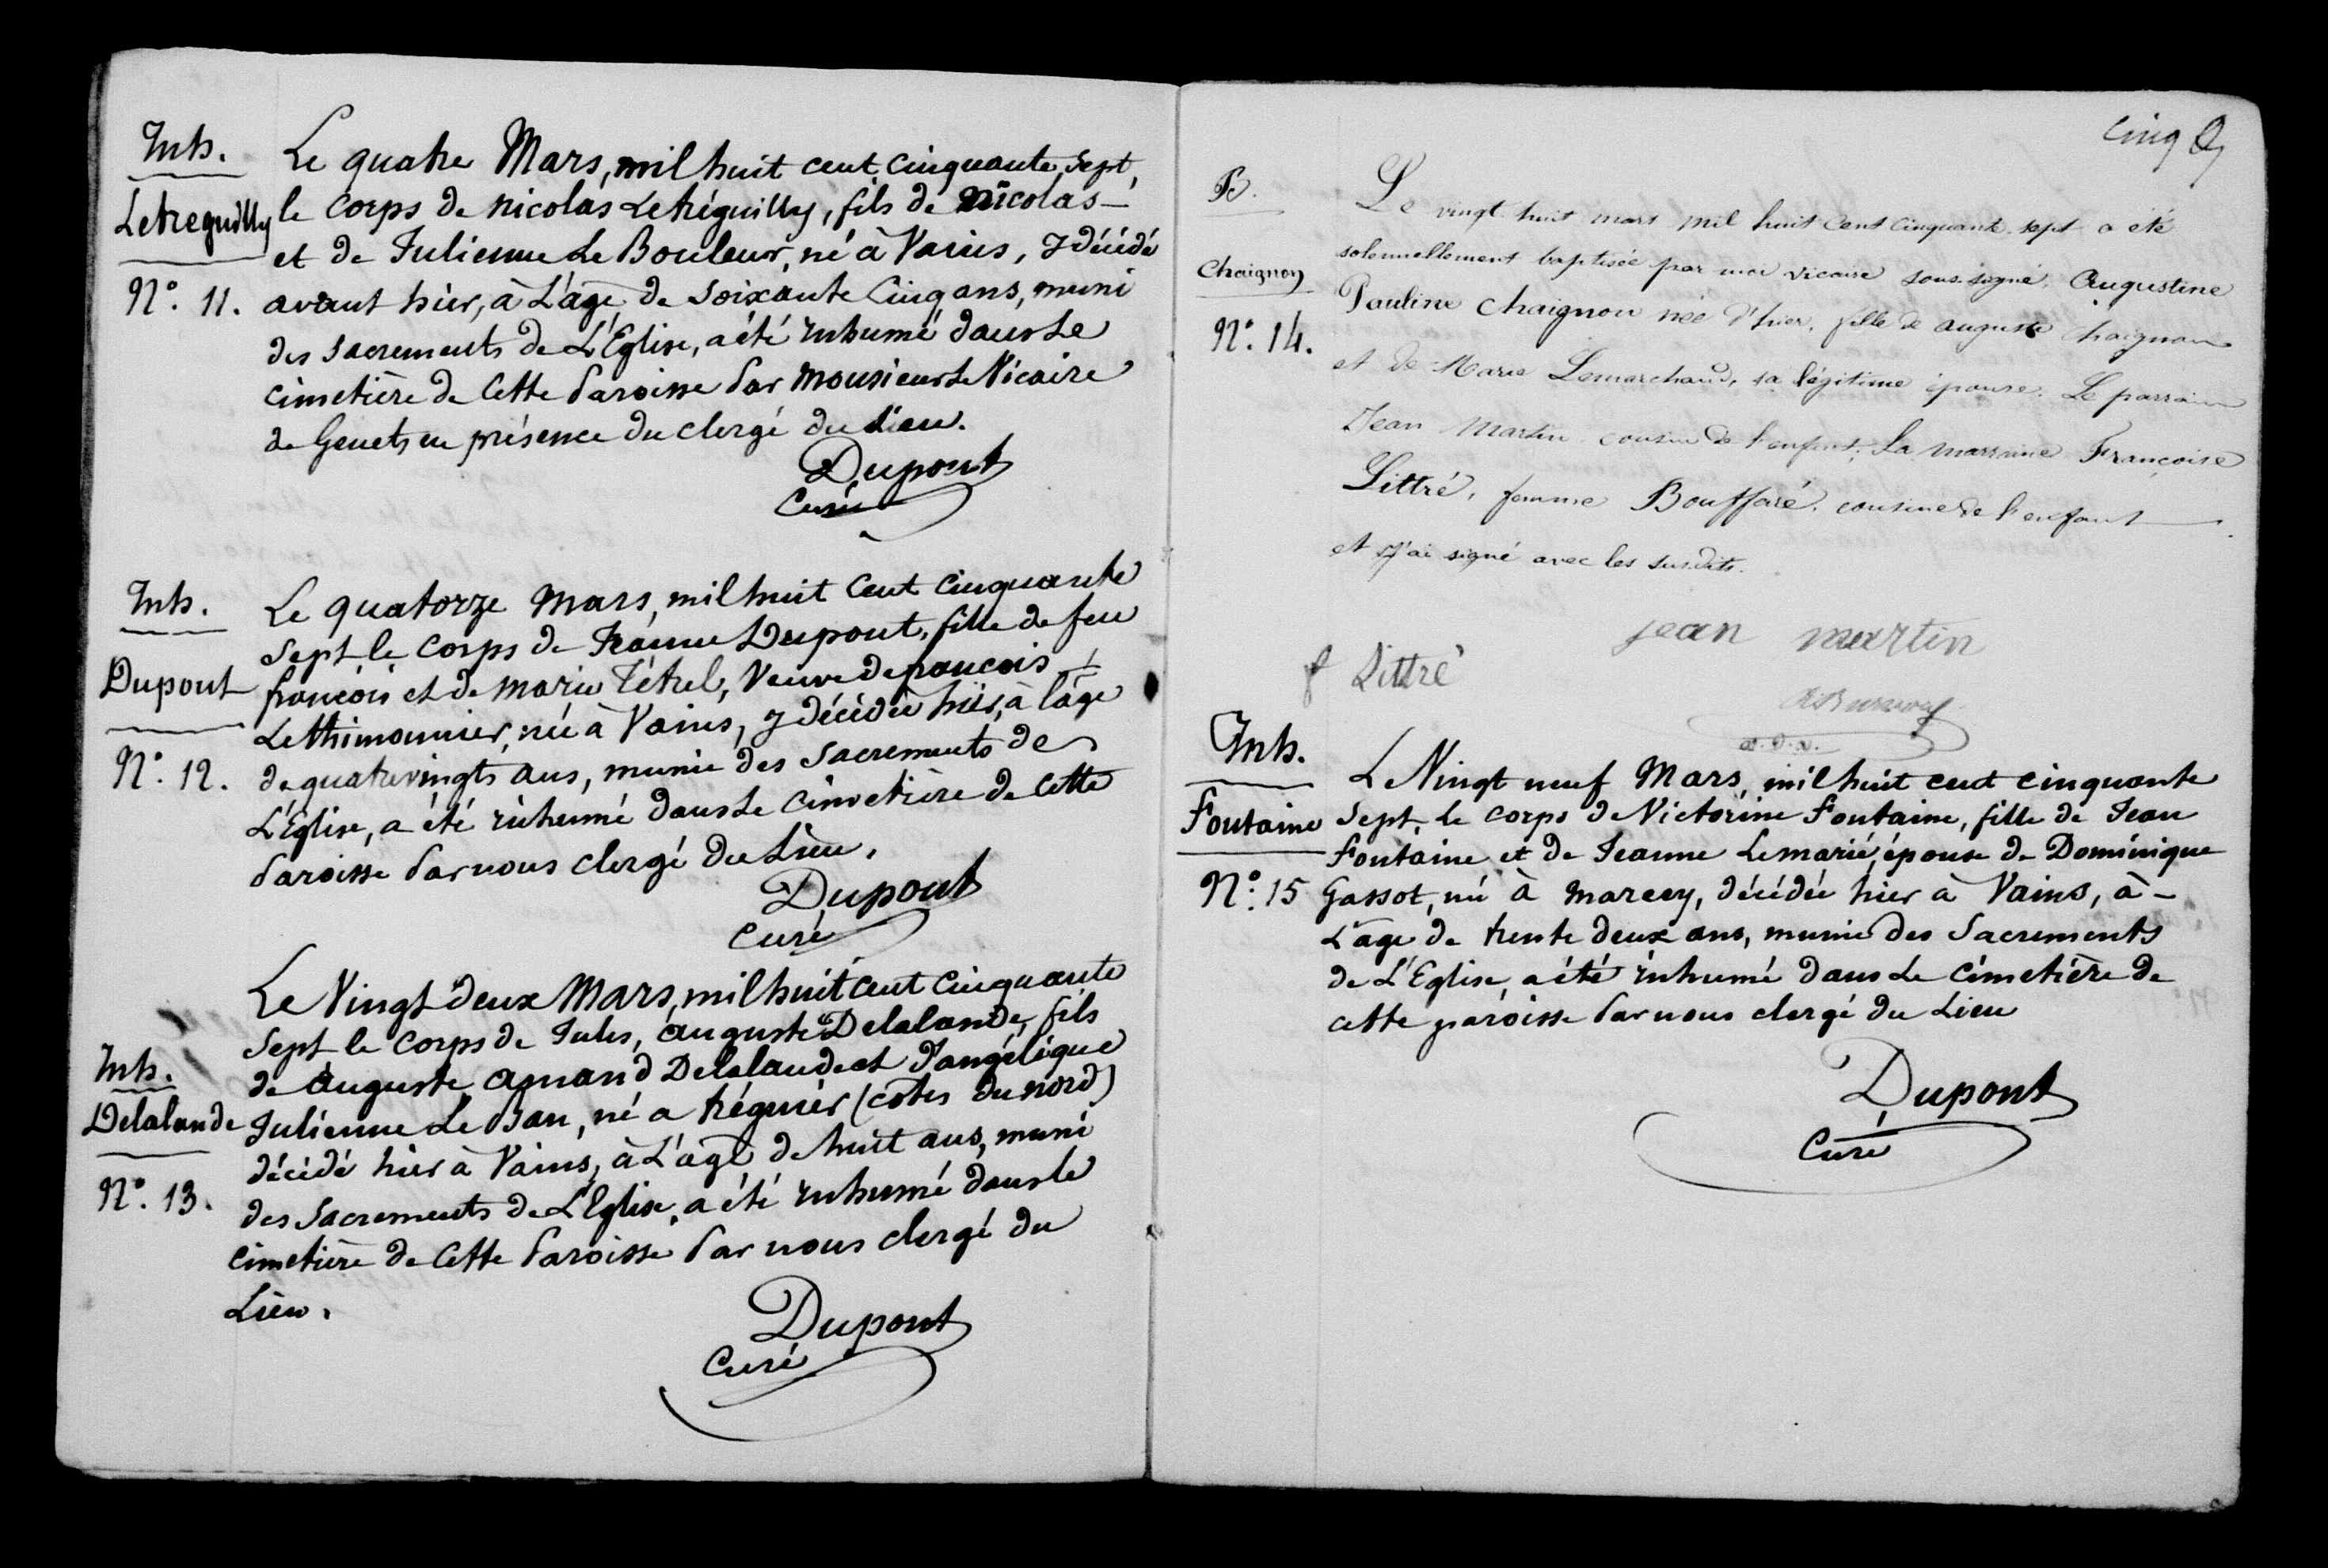 Inh.
Letreguilly
N°. 11.
Le quatre Mars, mil huit cent cinquante sept,
le corps de nicolas Letréguilly, fils de Nicolas –
et de Julienne Le Bouleur, né à Vains, y décédé
avant hier, à L'age de soixante Cinq ans, muni
des sacrements de L'Eglise, a été inhumé dans Le
cimetière de Cette Paroisse Par Monsieur Le Vicaire
de Genets en présence du clergé du Lieu.
Dupont
Curé
Inh.
Dupont
N°. 12.
Le quatorze Mars, mil huit Cent Cinquante
Sept, le corps de Jeanne Dupont, fille de feu
françois et de marie Tétrel, Veuve de françois
Lethimonnier, née à Vains, y décédée hier, à l'age
de quatrevingts ans, munie des Sacrements de
L'Eglise, a été inhumé dans Le Cimetière de Cette
Paroisse Par nous clergé du Lieu.
Dupont
Curé
Inh.
Delalande
N°. 13.
Le Vingt deux Mars, mil huit cent cinquante
Sept le Corps de Jules, auguste Delalande, fils
de auguste amand Delalande et d'angélique
Julienne Le Ban, né a tréguier (côtes du nord)
décédé hier à Vains, à L'age de huit ans, muni
des Sacrements de L'Eglise, a été inhumé dans le
Cimetière de Cette Paroisse Par nous clergé du
Lieu.
Dupont
Curé
Cinq
B.
Chaignon
N°. 14.
Le vingt huit mars mil huit Cent Cinquante sept a été
solennellement baptisée par moi vicaire sous-signé, Augustine
Pauline Chaignon née d'hier, fille de auguste Chaignon
et de Marie Lemarchand, sa légitime épouse. Le parrain
Jean Martin cousin de l'enfant; La marraine Françoise
Littré, femme Bouffaré, cousine de l'enfant
et j'ai signé avec les susdits.
jean martin
f Littré
Inh.
Fontaine
N°. 15
Le Vingt neuf Mars, mil huit cent cinquante
Sept, Le corps de Victorine Fontaine, fille de Jean
Fontaine et de Jeanne Lemarié, épouse de Dominique
Gassot, né à Marcey, décédée hier à Vains, à –
L'age de trente deux ans, munie des Sacrements
de L'Eglise, a été inhumé dans Le Cimetière de
cette paroisse Par nous clergé du Lieu
Dupont
Curé